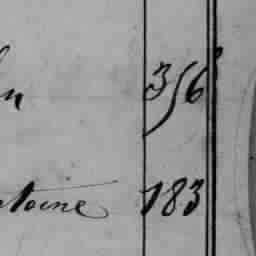 356
toine 183